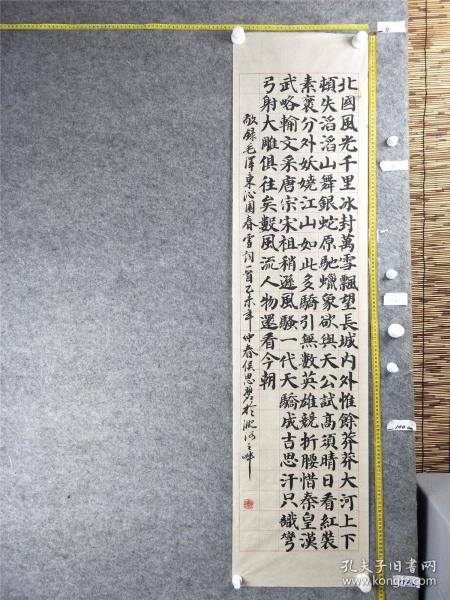 北國風光千里冰封萬雪飄望長城内外惟餘莽莽大河上下
頓失滔滔山舞銀蛇原馳蠟象欲與天公試高須晴日看紅裝
素裹分外妖嬈江山如此多驕引無數英雄競折腰惜秦皇漢
武略輸文采唐宗宋祖稍遜風騷一代天驕成吉思汗只識彎
弓射大雕俱往矣數風流人物還看今朝
敬錄毛澤東沁園春雪詞一首乙未年仲春侯思於淝河之畔
0
100
孔夫子旧书网
kongfz.com